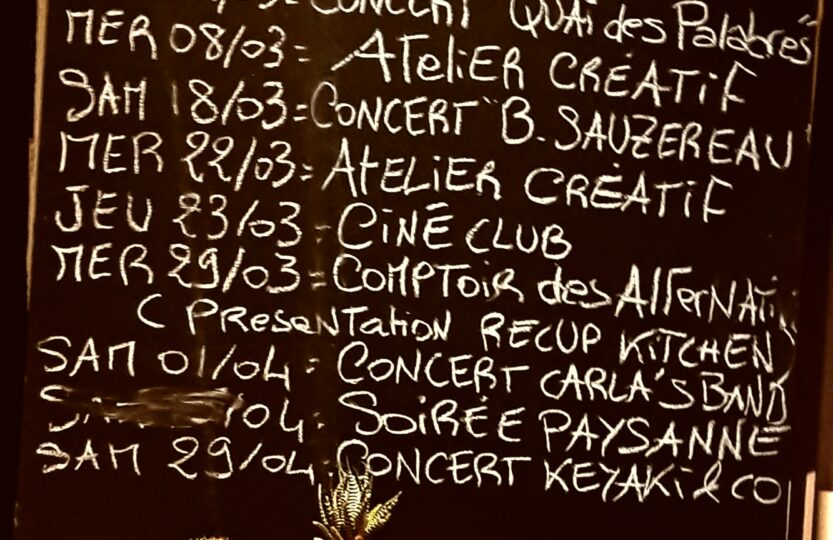 CONCERT "QUAi des Palabres"
MER 08/03= ATeliER CRÉATiF
SAM 18/03=CONCERT "B. SAUZEREAU"
MER 22/03= ATELiER CRÉATiF
JEU 23/03= CiNÉ CLUB
MER 29/03= COMPTOiR des AlTerNATi
( PResenTATioN RECUP KiTCHEN)
SAM 01/04= CONCERT CARLA'S BAND
/04= SOiRÉE PAYSANNE
SAM 29/04=CONCERT KEYAKi & CO